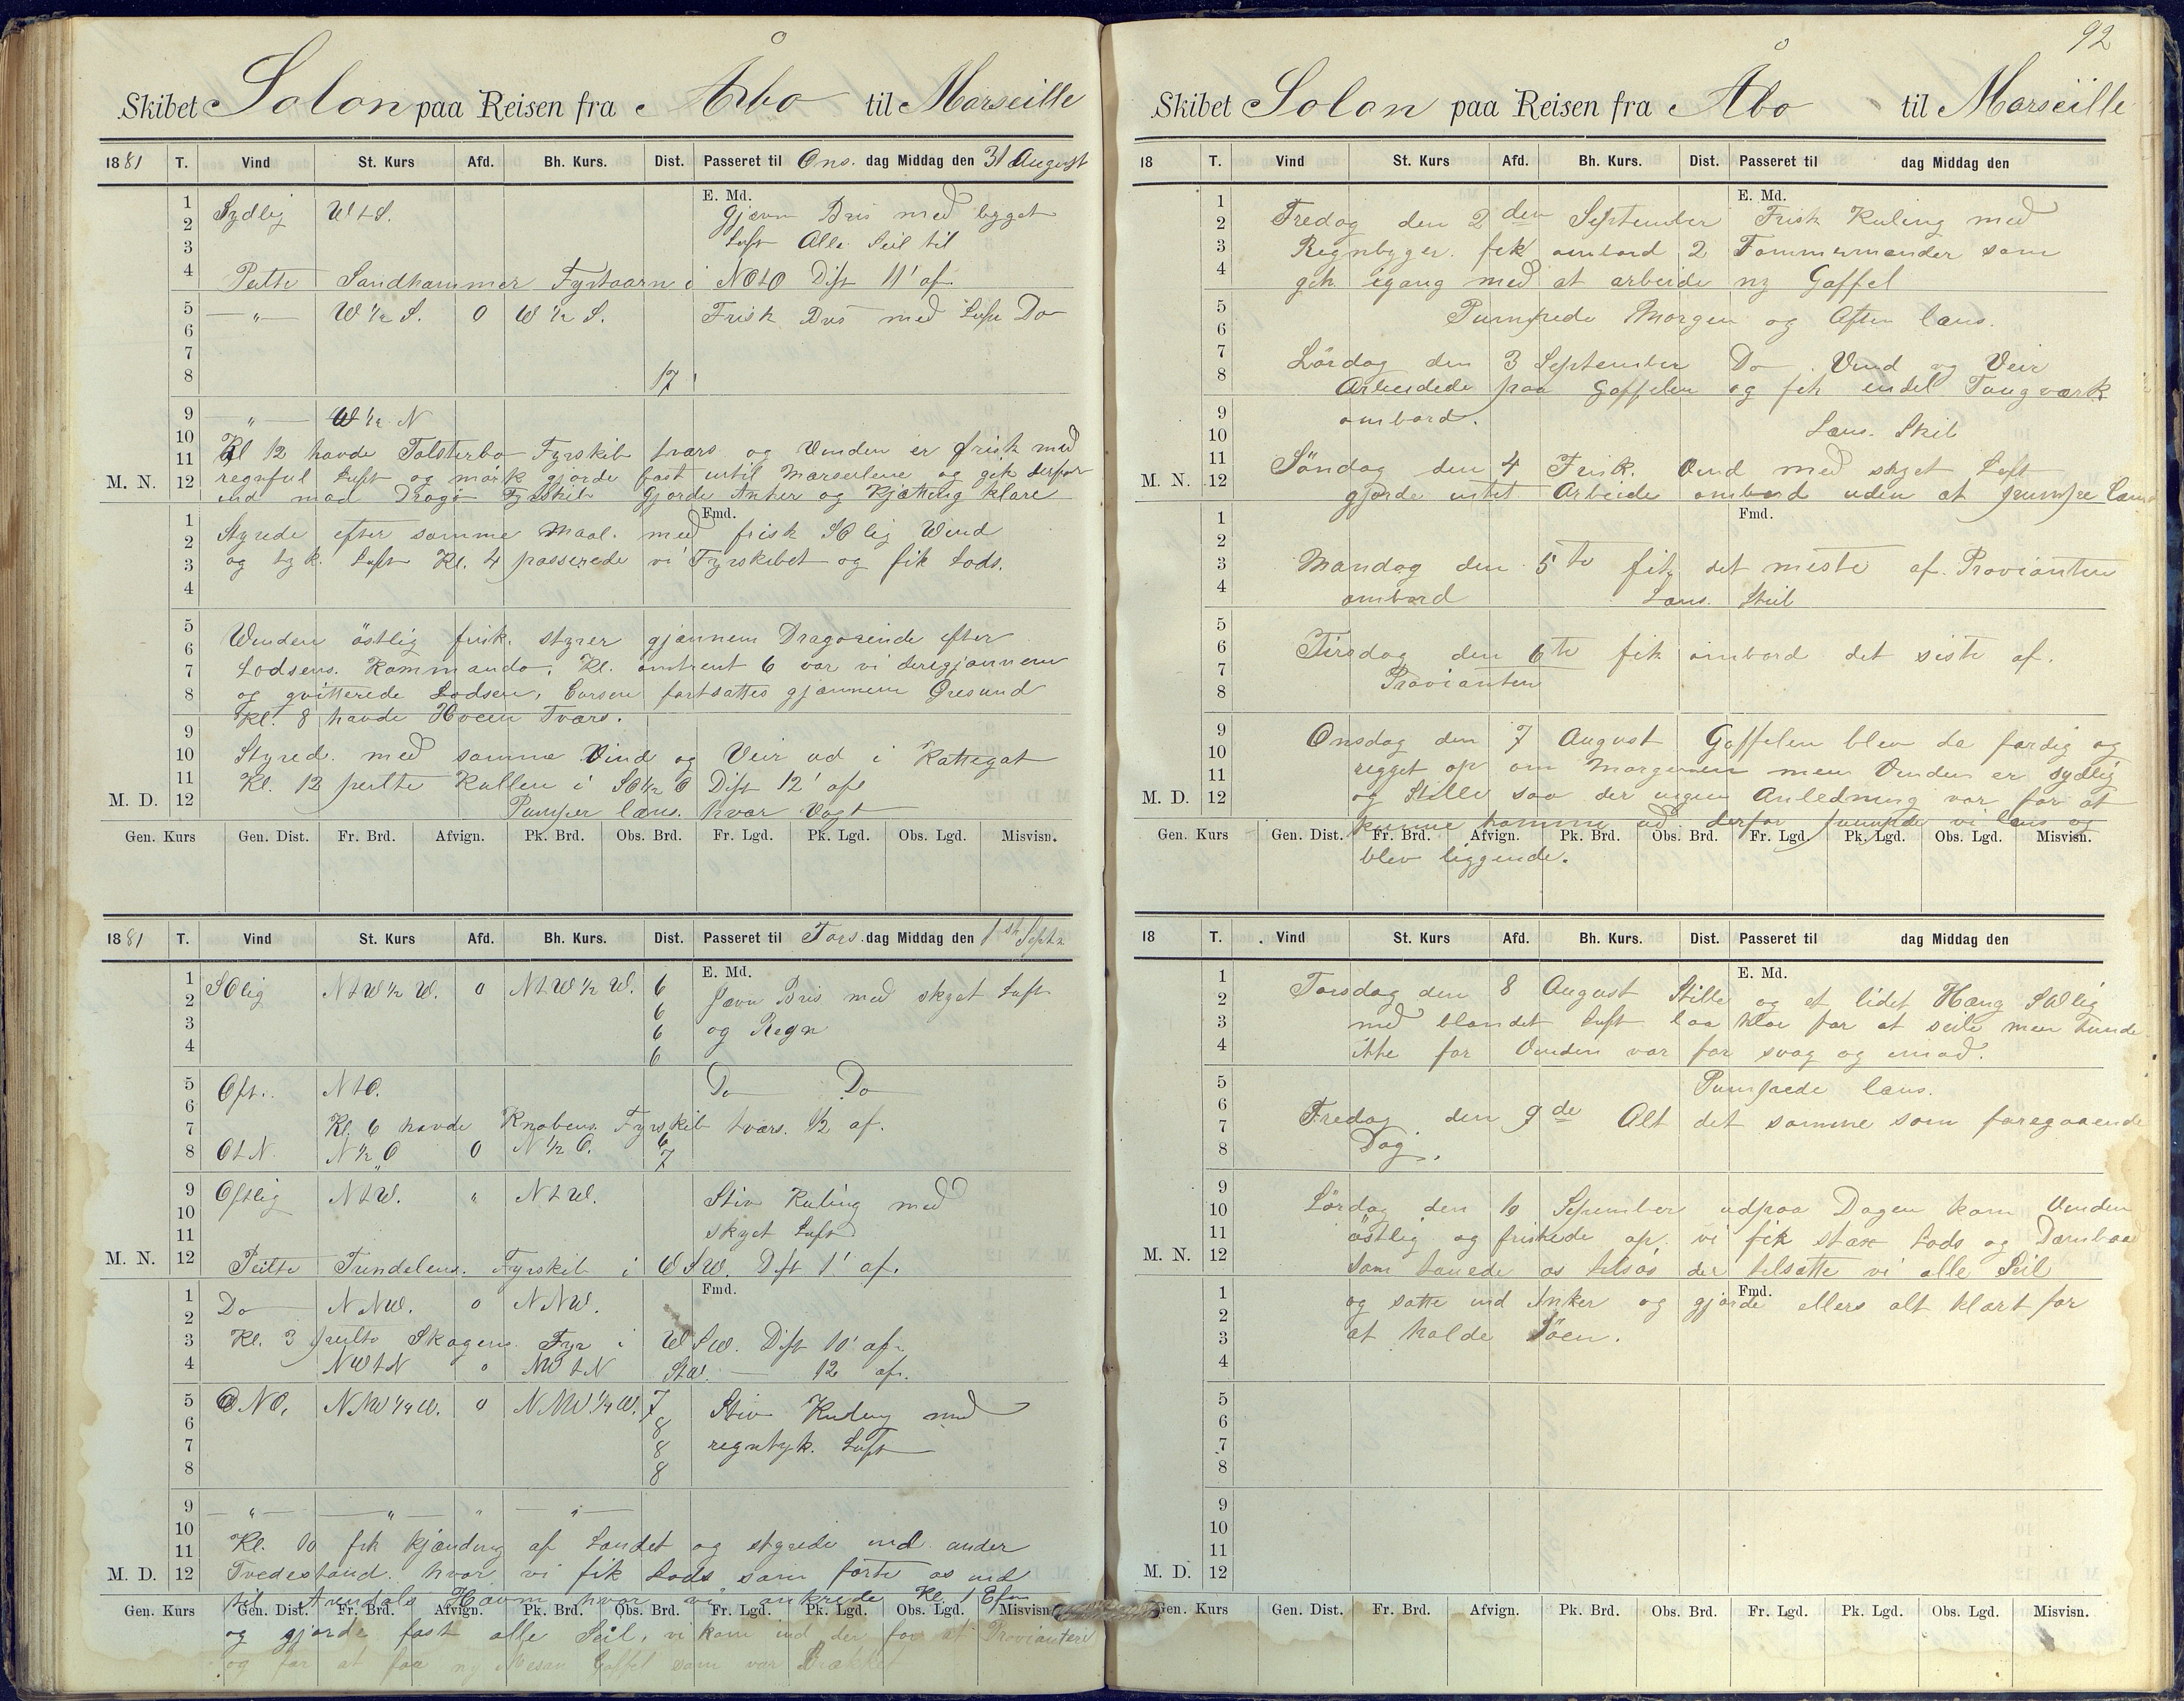 Skibet Solon paa Reisen fra Åbo til Marseille
1881 T. Vind St. Kurs Afd. Bh. Kurs. Dist. Passeret til Ons. dag Middag den 31 August
E. Md.
1 2 3 4
Sydlig W t S. Gjævn Bris med byget
Luft Alle Seil til
Peilte Sandhammer Fyrtaarn i NOtO Dist 11' af
5 6 7 8
—„— W ½ S. 0 W ½ S. Frisk Bris med Luft Do
17'
9 10 11 M. N. 12
—„— W ½ N
Kl 12 havde Falsterbo Fyrskib tværs og Vinden er frisk med
regnful Luft og mörk gjorde fast indtil Marseilene og gik derfor
ind mod Dragö Fyrskib Gjorde Anker og Kjætting klare
Fmd.
1 2 3 4
Styrede efter samme Maal. med frisk SOlig Wind
og tyk. Luft Kl. 4 passerede vi Fyrskibet og fik Lods.
5 6 7 8
Winden östlig frisk. styrer gjønnem Dragörende efter
Lodsens. Kommando. Kl. omtrent 6 var vi derigjønnem
og qvitterede Lodsen, Coursen fortsattes gjønnem Öresund
Kl. 8 havde Hveen Tværs.
9 10 11 M. D. 12
Styrede med samme Vind og Veir ud i Kattegat
Kl. 12 peilte Kullen i SO½O Dist 12' af
Pumper læns. hver Vagt
Gen. Kurs Gen. Dist. Fr. Brd. Afvign. Pk. Brd. Obs. Brd. Fr. Lgd. Pk. Lgd. Obs. Lgd. Misvisn.
1881 T. Vind St. Kurs Afd. Bh. Kurs. Dist. Passeret til Tors. dag Middag den 1st Septr
E. Md.
1 2 3 4
SOlig N t W ½ W. 0 N t W ½ W. 6 Jævn Bris med skyet Luft
6
6 og Regn
6
5 6 7 8
Ost.. N t O. Do Do
Kl. 6 havde Knobens Fyrskib tværs. ½ af.
O t N. N ½ O 0 N ½ O. 6
7
9 10 11 M. N. 12
Ostlig N t W. „ N t W. Stiv Kuling med
skyet Luft
Peilte Trindelens. Fyrskib i WSW. Dist 1' af.
Fmd.
1 2 3 4
Do NNW. 0 NNW.
Kl. 3 peilte Skagens Fyr i WSW. Dist 10' af.
NW t N 0 NW t N 12 af.
5 6 7 8
ONO. NNW ¼ W. 0 NNW ¼ W. 7 Stiv Kuling med
8
8 regntyk. Luft
8
9 10 11 M. D. 12
—„— —„— „ —„—
Kl. 10 fik kjænding af Landet og styrede ind under
Tvedestrand. hvor vi fik Lods som förte os ind
til Arendals Havn hvor vi ankrede Kl. 1 Efm
Gen. Kurs Gen. Dist. Fr. Brd. Afvign. Pk. Brd. Obs. Brd. Fr. Lgd. Pk. Lgd. Obs. Lgd. Misvisn.
og gjorde fast alle Seil, vi kom ind der for at Provianteri
og for at faa ny Mesan Gaffel som var Brækket
92
Skibet Solon paa Reisen fra Åbo til Marseille
18 T. Vind St. Kurs Afd. Bh. Kurs. Dist. Passeret til dag Middag den
E. Md.
1 2 3 4
Fredag den 2den September Frisk Kuling med
Regnbyger. fik ombord 2 Tømmermænder som
gik igang med at arbeide ny Gaffel
5 6 7 8
Pumpede Morgen og Aften læns.
Lördag den 3 September Do Vind og Veir
Arbeidede paa Gaffelen og fik endel Tougværk
9 10 11 M. N. 12
ombord. Læns. Skib
Söndag den 4 Frisk. Vind med skyet Luft
gjorde intet Arbeide ombord uden at pumpe læns
Fmd.
1 2 3 4
Mandag den 5te fik det meste af. Provianten
ombord Læns. Skib
5 6 7 8
Tirsdag den 6te fik ombord det siste af.
Provianten
9 10 11 M. D. 12
Onsdag den 7 August Gaffelen blev da færdig og
rigget op om Morgenen men Vinden er sydlig
og Stille saa der ingen Anledning var for at
kunne komme ud. derfor pumpede vi læns og
Gen. Kurs Gen. Dist. Fr. Brd. Afvign. Pk. Brd. Obs. Brd. Fr. Lgd. Pk. Lgd. Obs. Lgd. Misvisn.
blev liggende.
18 T. Vind St. Kurs Afd. Bh. Kurs. Dist. Passeret til dag Middag den
E. Md.
1 2 3 4
Torsdag den 8 August Stille og et lidet Hæng SWlig
med blandet Luft laa klar for at seile men kunde
ikke for Vinden var for svag og imod.
5 6 7 8
Pumpede læns.
Fredag den 9de Alt det samme som foregaaende
Dag.
9 10 11 M. N. 12
Lördag den 10 September udpaa Dagen kom Vinden
östlig og friskede op. vi fik strax Lods og Dambaad
som tauede os tilsös der tilsatte vi alle Seil
Fmd.
1 2 3 4
og satte ind Anker og gjorde ellers alt klart for
at holde Söen.
5 6 7 8
9 10 11 M. D. 12
Gen. Kurs Gen. Dist. Fr. Brd. Afvign. Pk. Brd. Obs. Brd. Fr. Lgd. Pk. Lgd. Obs. Lgd. Misvisn.